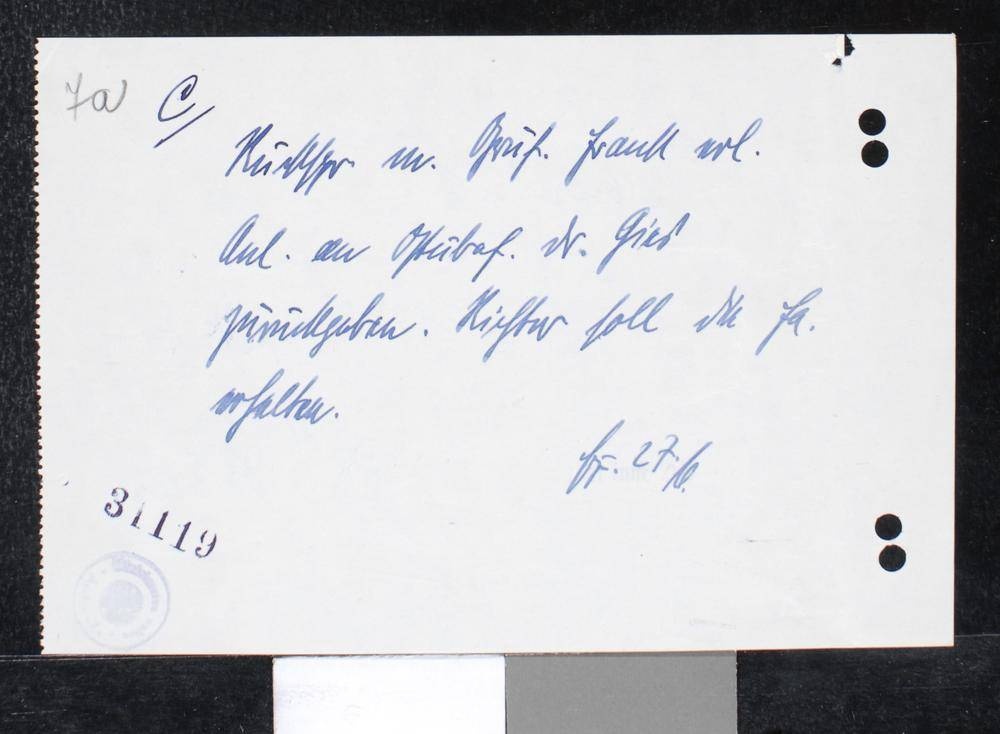 7a C/
Rückspr. m. Gruf. Frank erl.
Anl. an Ostubaf. Dr. Gies
zurückgeben. Richter soll die Fa.
erhalten.
27./6.
31119